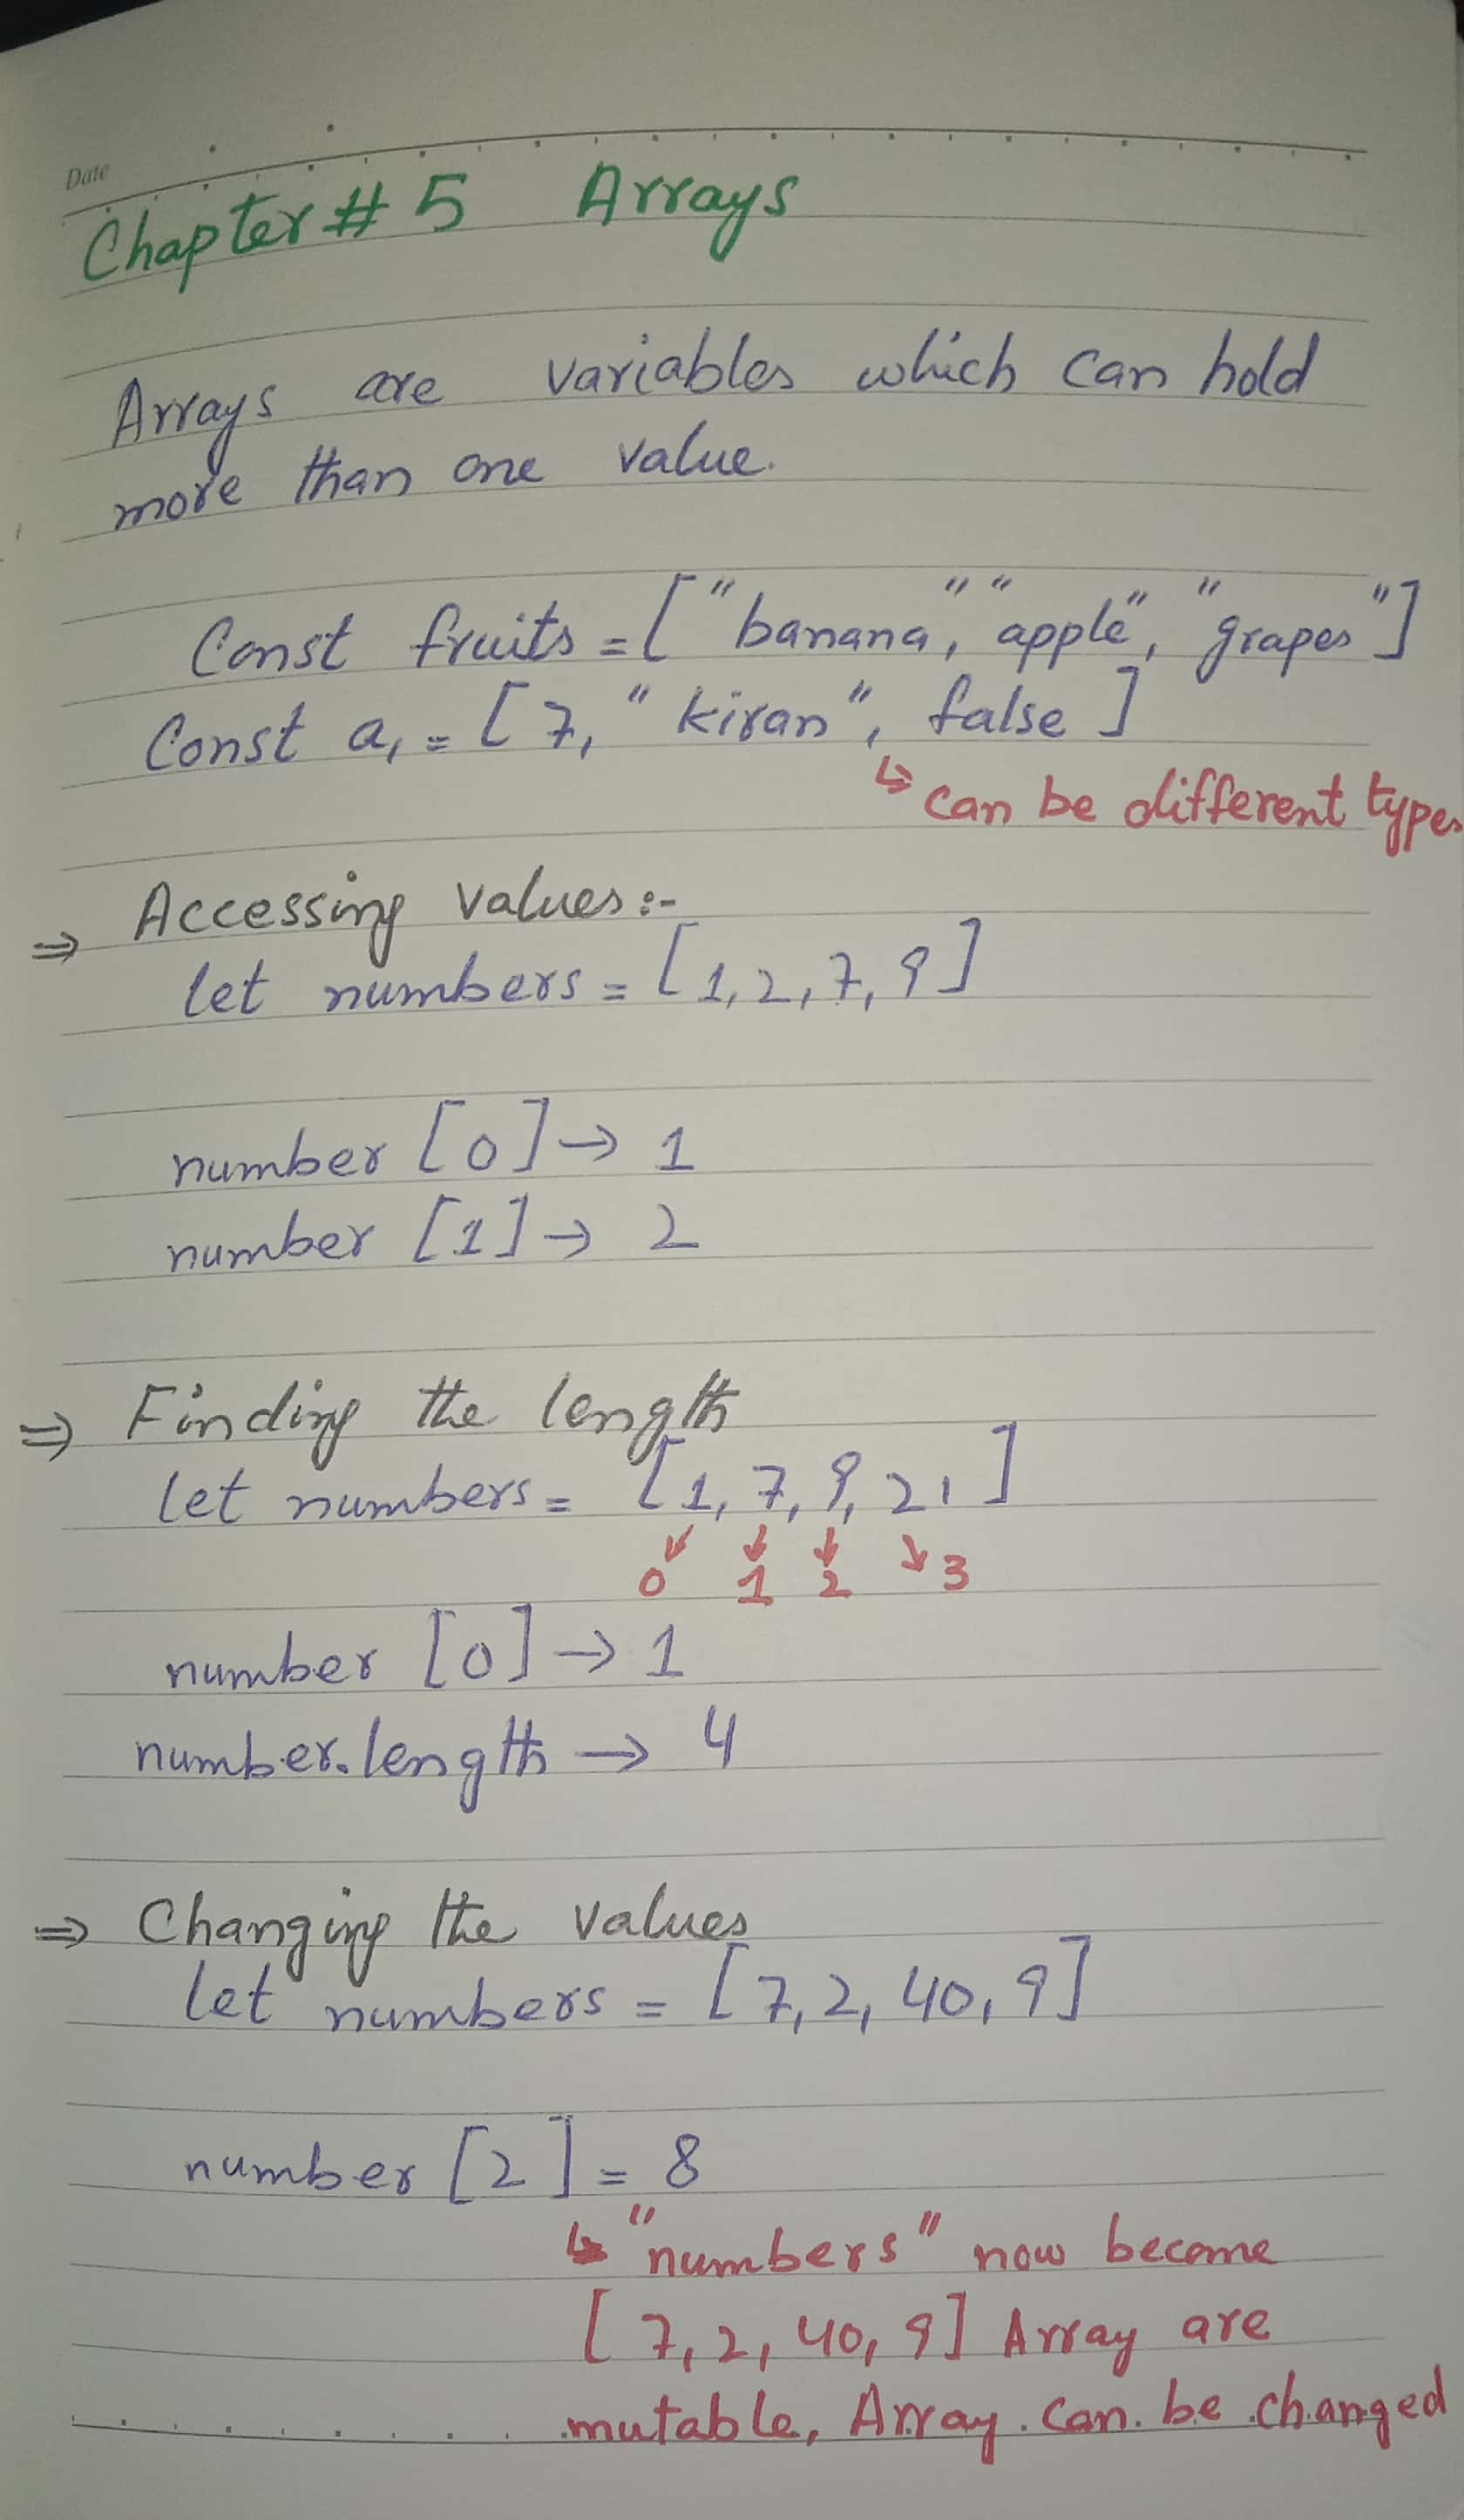 Date
Chapter # 5 Arrays
Arrays are variables which can hold
more than one value.
Const fruits = ["banana", "apple", "grapes"]
Const a1 = [7, "kiran", false]
↳ can be different types
⇒ Accessing values:-
let numbers = [1, 2, 7, 9]
number [0] → 1
number [1] → 2
⇒ Finding the length
let numbers = [1, 7, 9, 21]
0 1 2 3
number [0] → 1
number.length → 4
⇒ Changing the values
let numbers = [7, 2, 40, 9]
number [2] = 8
↳ "numbers" now become
[7, 2, 40, 9] Array are
mutable, Array can be changed